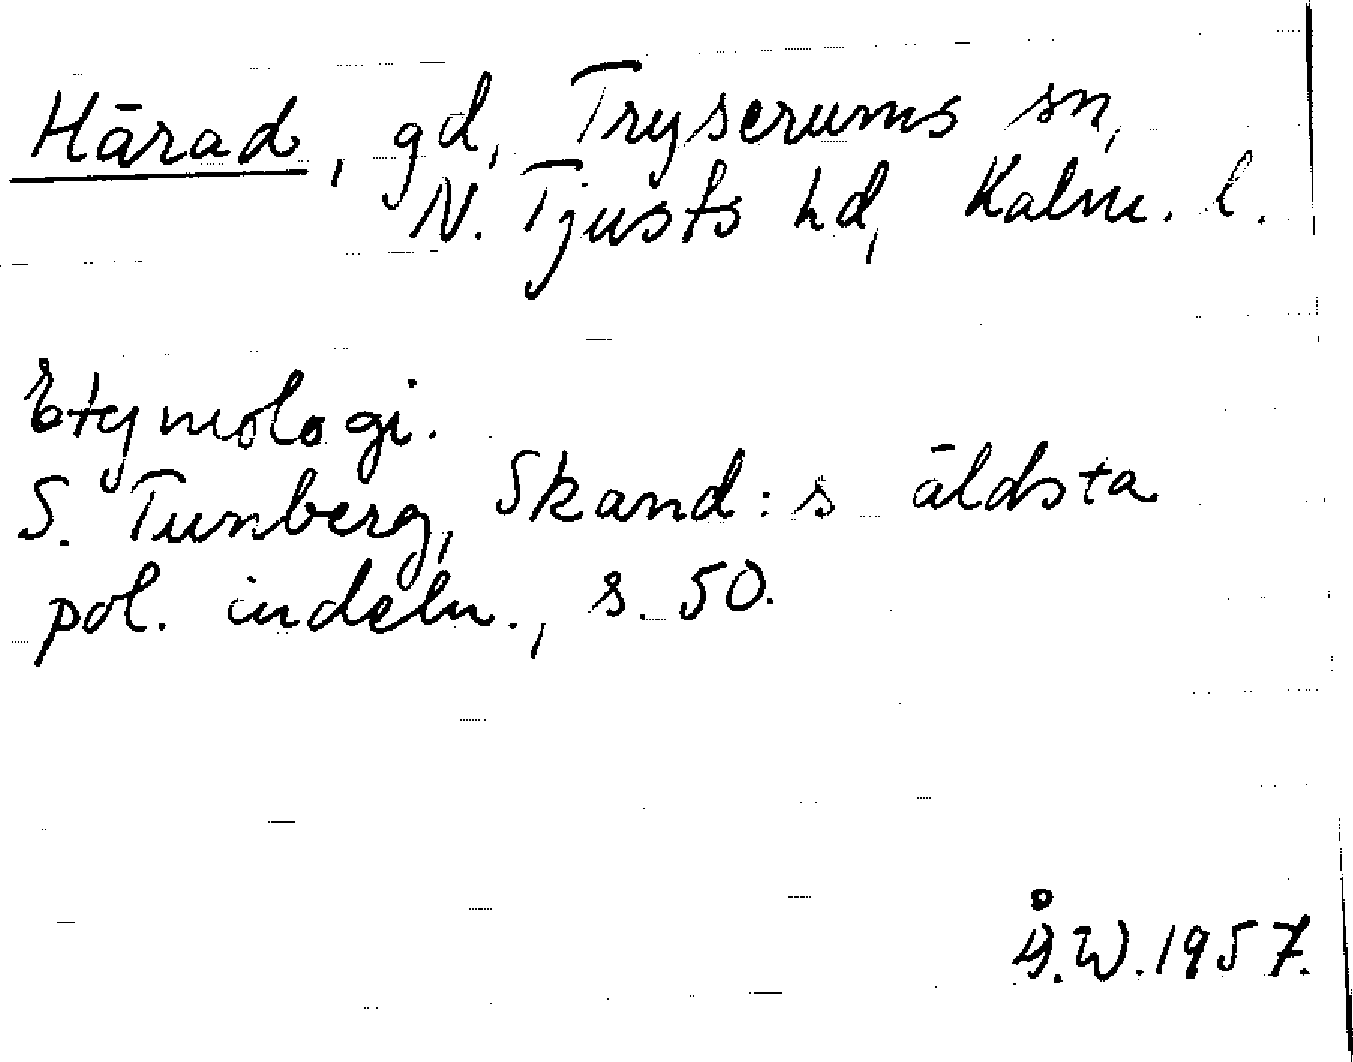 Härad, gd, Tryserums sn,
N. Tjusts hd, Kalm. l.
Etymologi.
S. Tunberg, Skand:s äldsta
pol. indeln., s. 50.
Å.W. 1957.